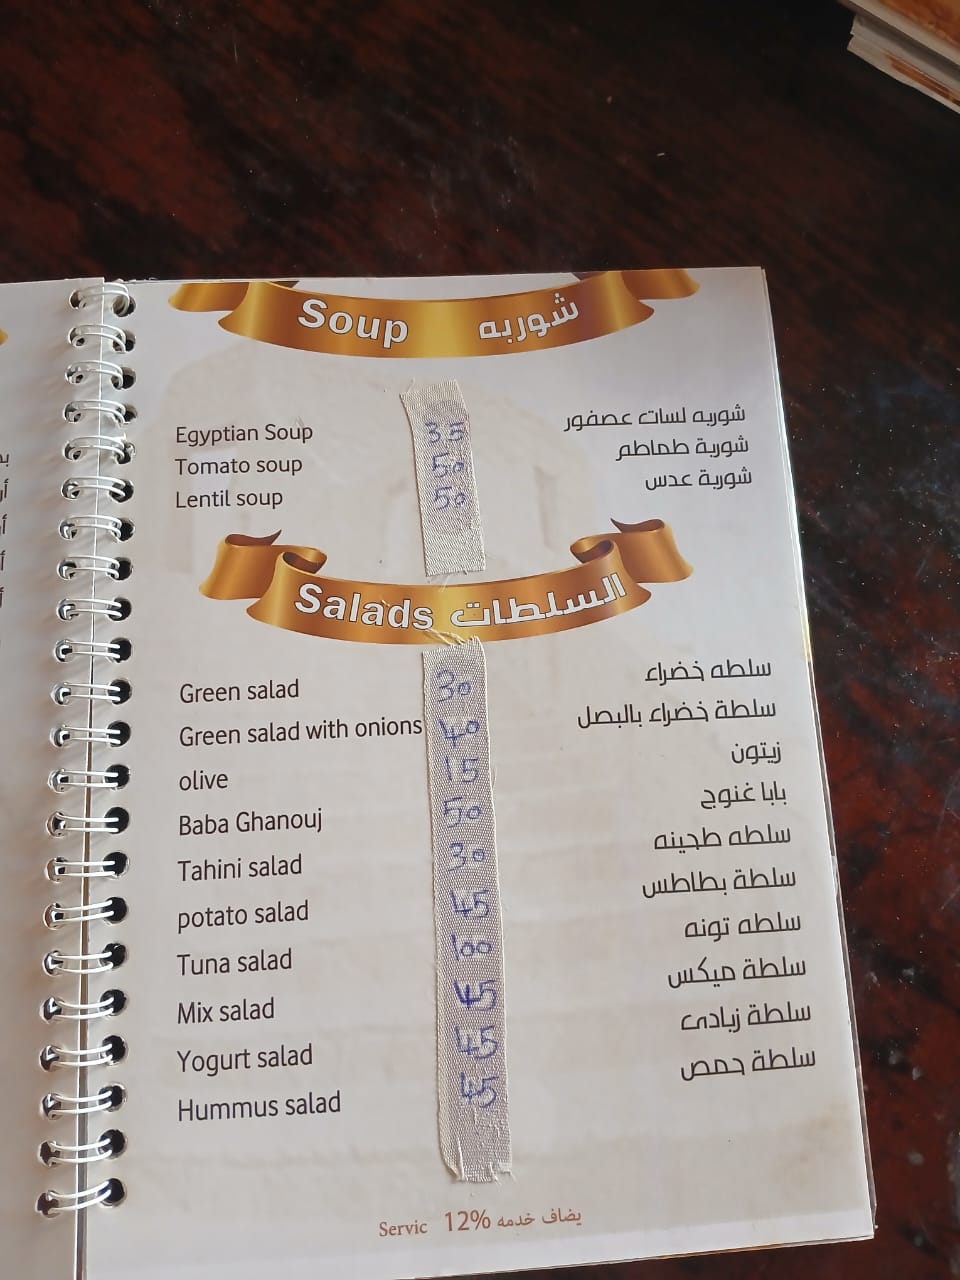 Soup شوربه
Egyptian Soup 35 شوربه لسات عصفور
Tomato soup 50 شوربة طماطم
Lentil soup 50 شوربة عدس
Salads السلطات
Green salad 30 سلطه خضراء
Green salad with onions 40 سلطة خضراء بالبصل
olive 15 زيتون
Baba Ghanouj 50 بابا غنوج
Tahini salad 30 سلطه طحينه
potato salad 45 سلطة بطاطس
Tuna salad 100 سلطه تونه
Mix salad 45 سلطة ميكس
Yogurt salad 45 سلطة زبادى
Hummus salad 45 سلطة حمص
Servic 12% يضاف خدمه